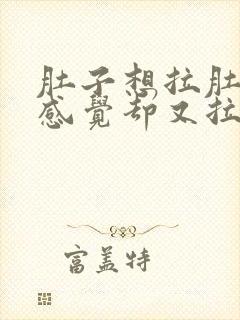 肚子想拉肚
感覺却又拉
富盖特